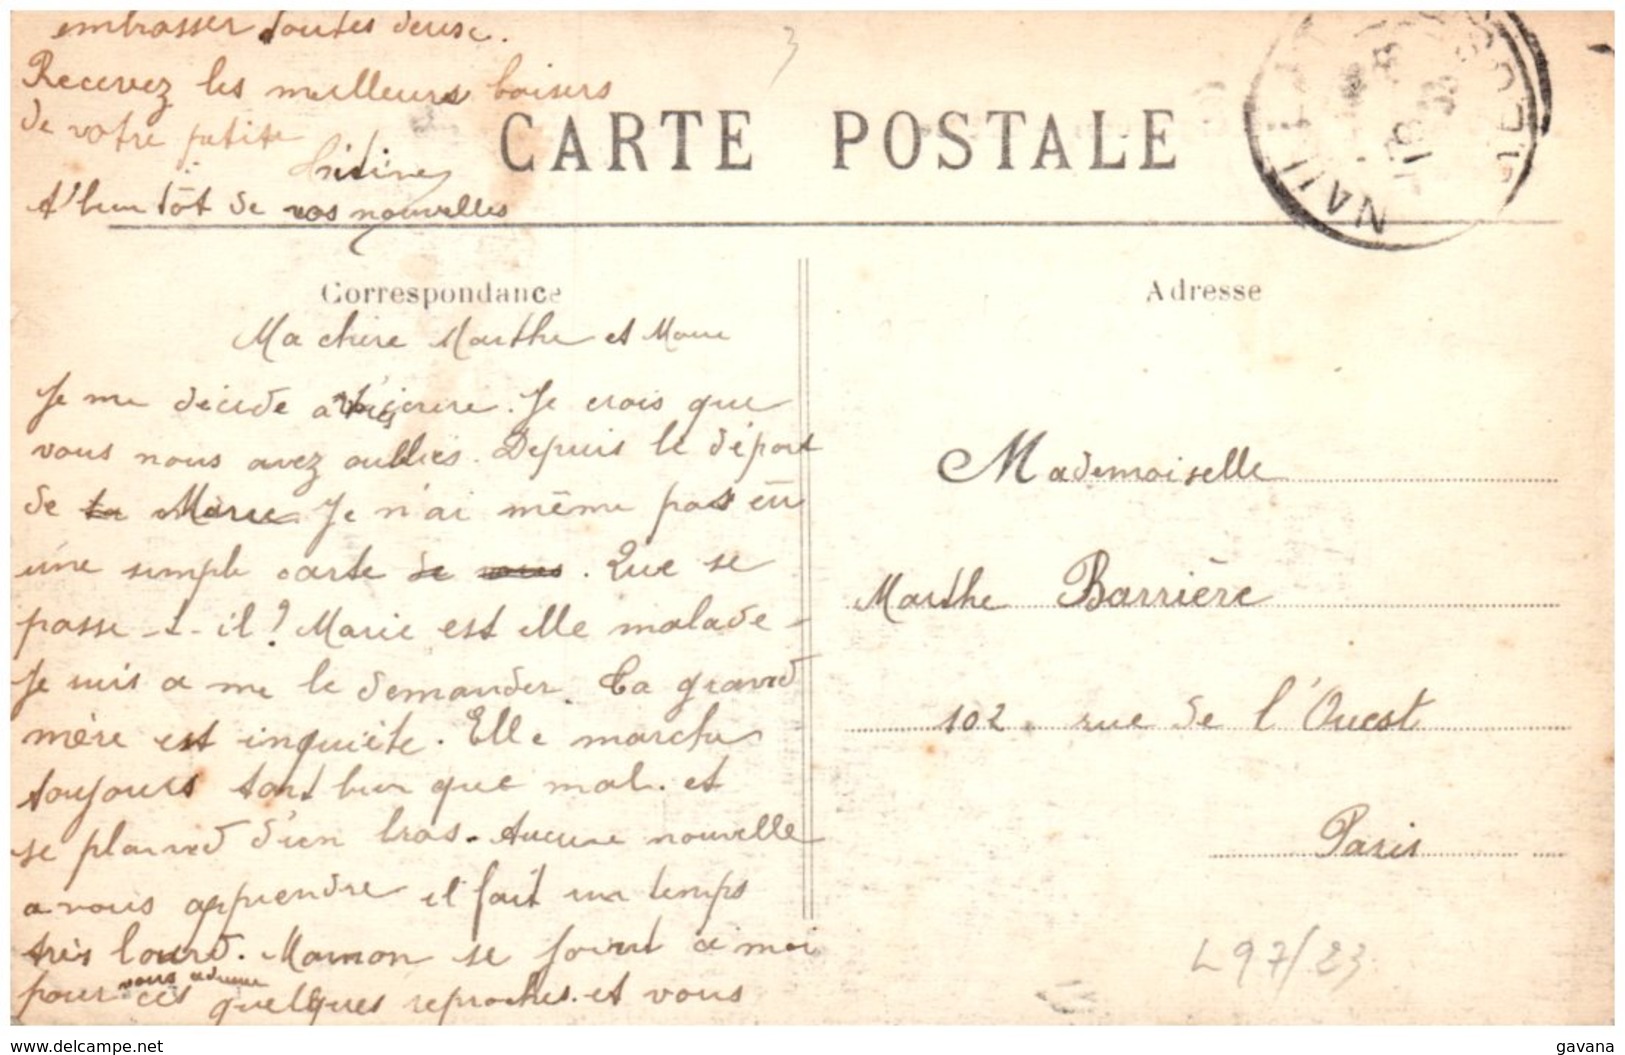 embrasser toutes deux.
Recevez les meilleurs baisers
de votre petite
A'bientôt de vos nouvelles
CARTE POSTALE
Correspondance
Ma chère Marthe et Marie
Je me décide a écrire. Je crois que
vous nous avez oubliés. Depuis le départ
de la Marie Je n'ai même pas eu
une simple carte de vous. Que se
passe-t-il? Marie est elle malade
Je suis a me le demander. Ta grand
mère est inquiète. Elle marche
toujours tant bien que mal. et
se plaind d'un bras. Aucune nouvelle
a vous apprendre il fait un temps
très lourd. Maman se joint a moi
pour vous adresser ces quelques reproches. et vous
Adresse
Mademoiselle
Marthe Barrière
102 rue de l'Ouest
Paris
L97/23
www.delcampe.net
gavana